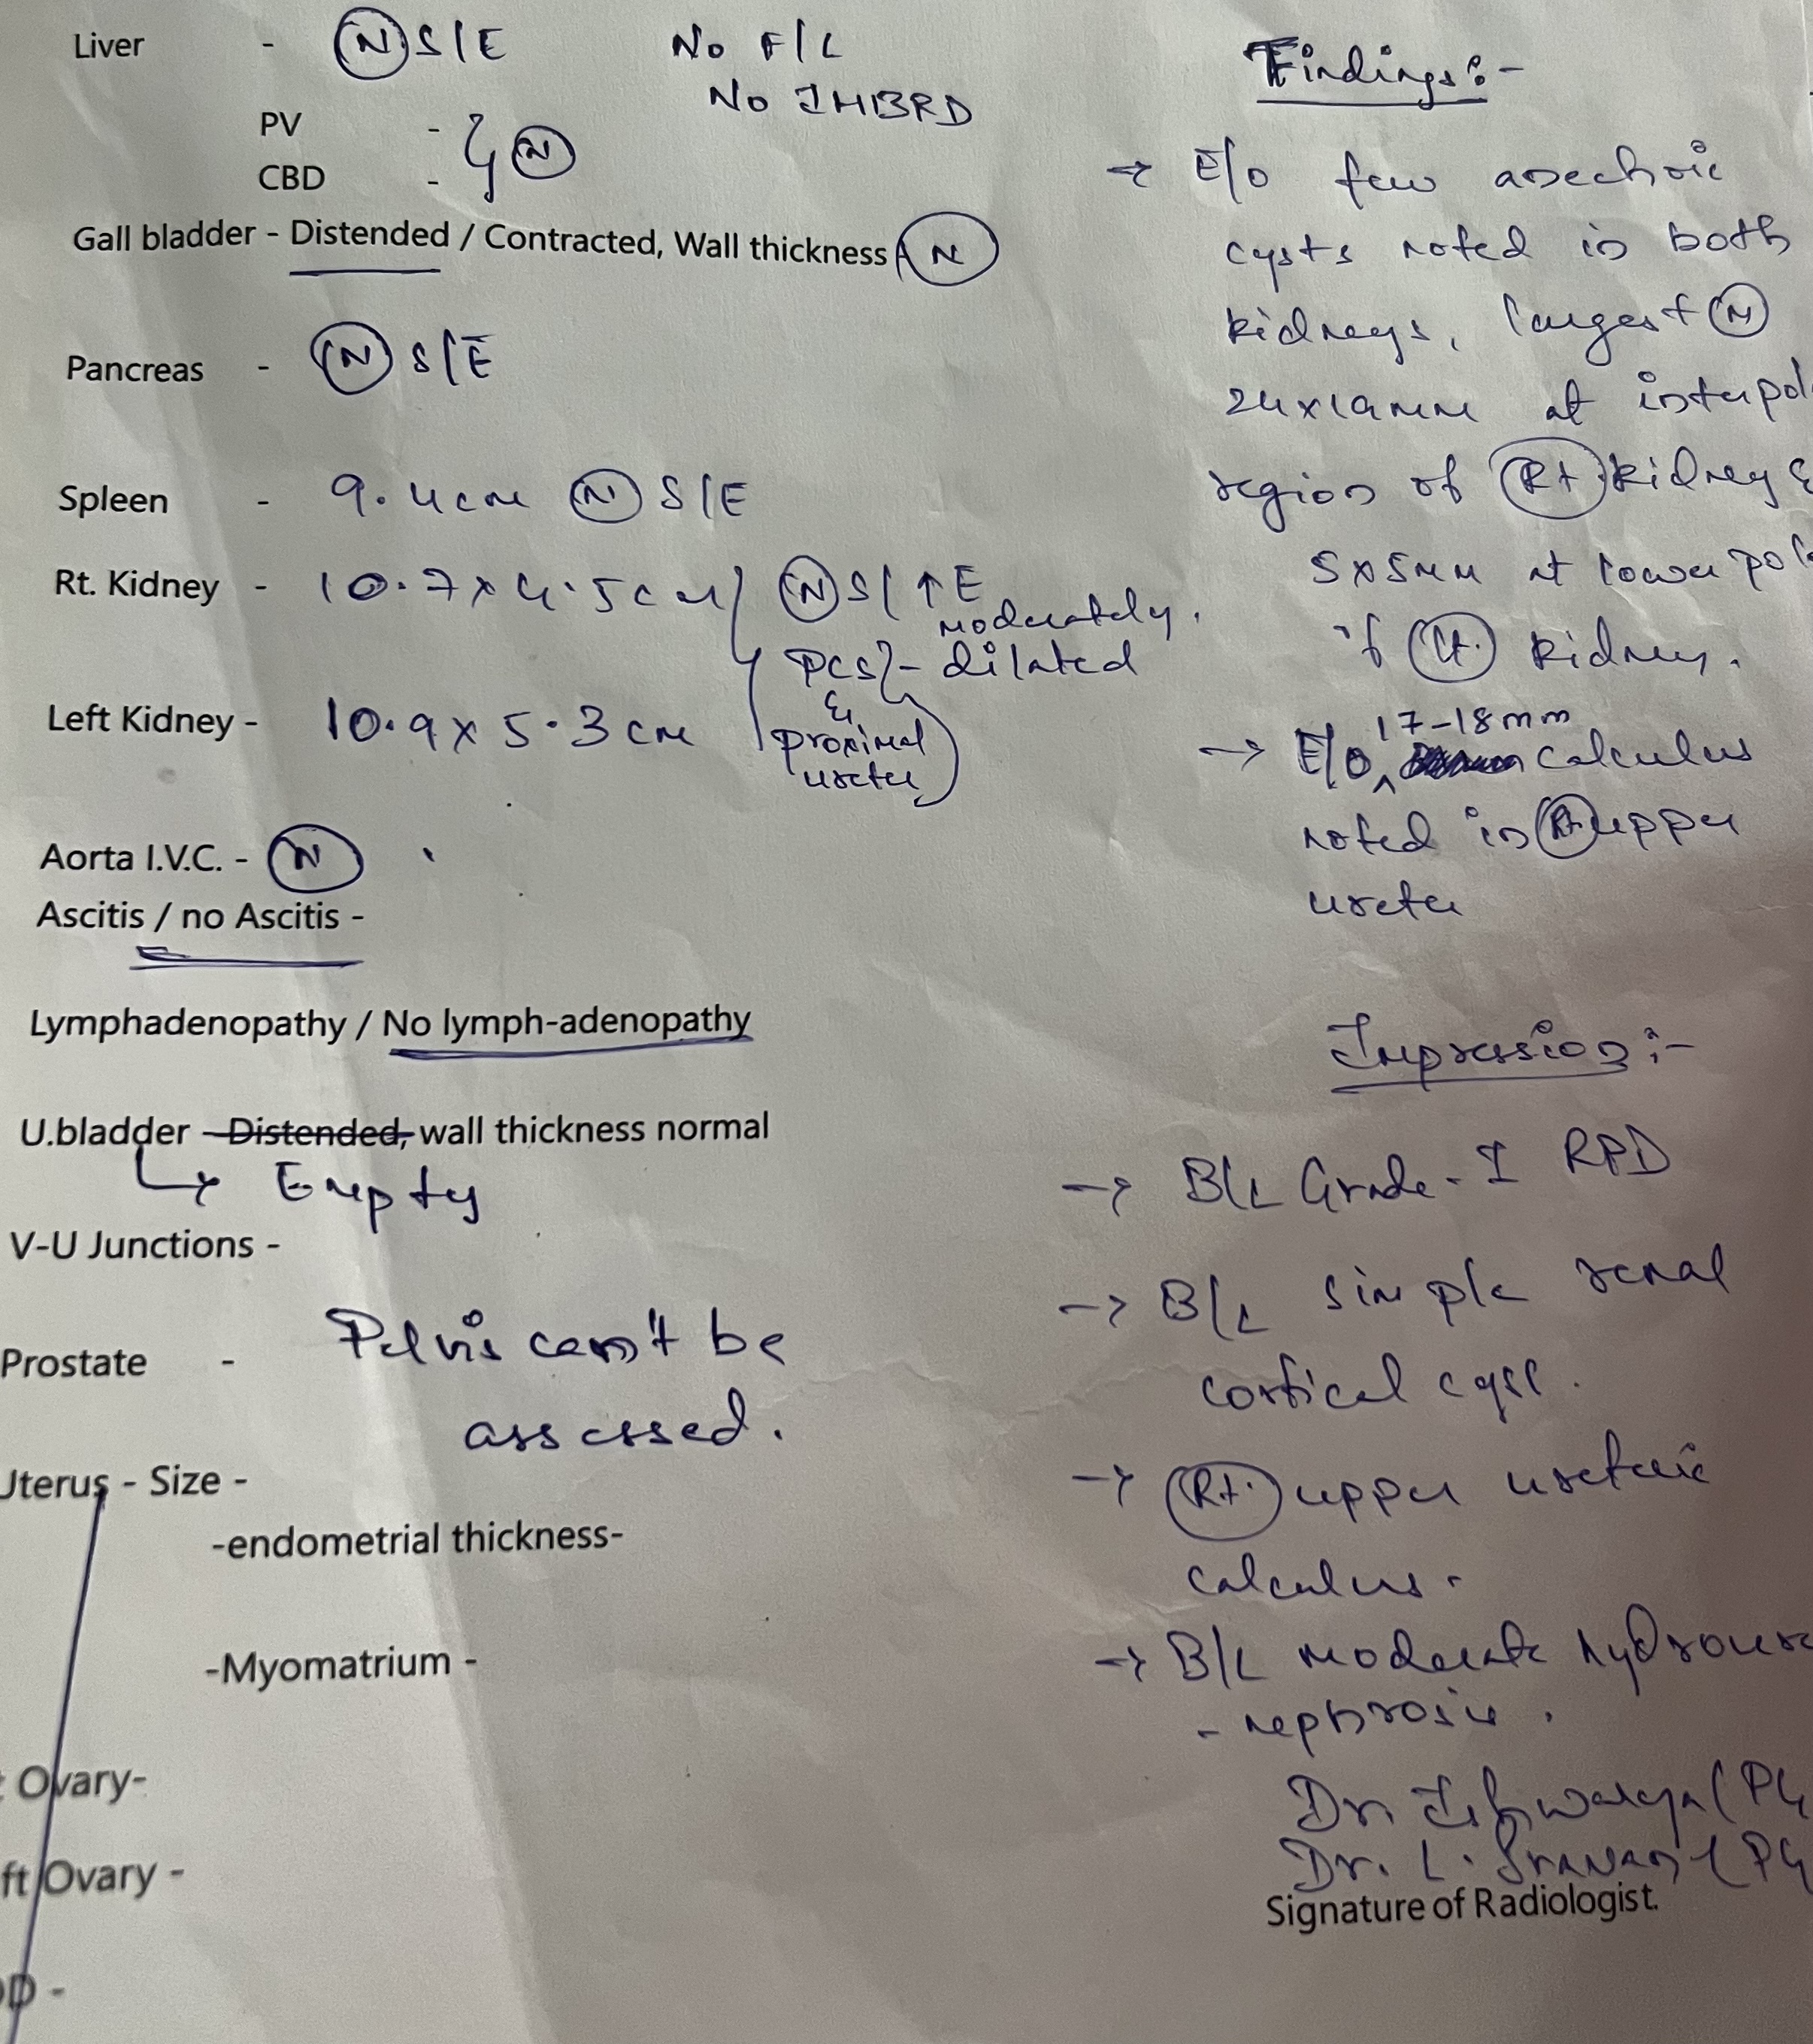 Liver - (N) S/E No F/L
No IHBRD
PV -
CBD - } (N)
Gall bladder - Distended / Contracted, Wall thickness (N)
Pancreas - (N) S/E
Spleen - 9.4cm (N) S/E
Rt. Kidney - 10.7 x 4.5cm (N) S/↑E
moderately.
PCS - dilated
&
proximal
ureter
Left Kidney - 10.9 x 5.3cm
Aorta I.V.C. - (N)
Ascitis / no Ascitis -
Lymphadenopathy / No lymph-adenopathy
U.bladder - Distended, wall thickness normal
↳ Empty
V-U Junctions -
Pelvis can't be
assessed.
Prostate -
Uterus - Size -
-endometrial thickness-
-Myomatrium -
Ovary-
ft Ovary -
D -
Findings:-
→ E/o few anechoic
cysts noted in both
kidneys, largest (N)
24x19mm at interpol
region of (Rt) kidney &
5x5mm at lower pol
of (Lt.) kidney.
→ E/o 17-18mm calculus
noted in (Rt) upper
ureter
Impression:-
→ B/L Grade-I RPD
→ B/L simple renal
cortical cyst.
→ (Rt.) upper ureteric
calculus.
→ B/L moderate hydroure
-nephrosis.
Dr. (PG
Dr. L. Sravan (PG
Signature of Radiologist.